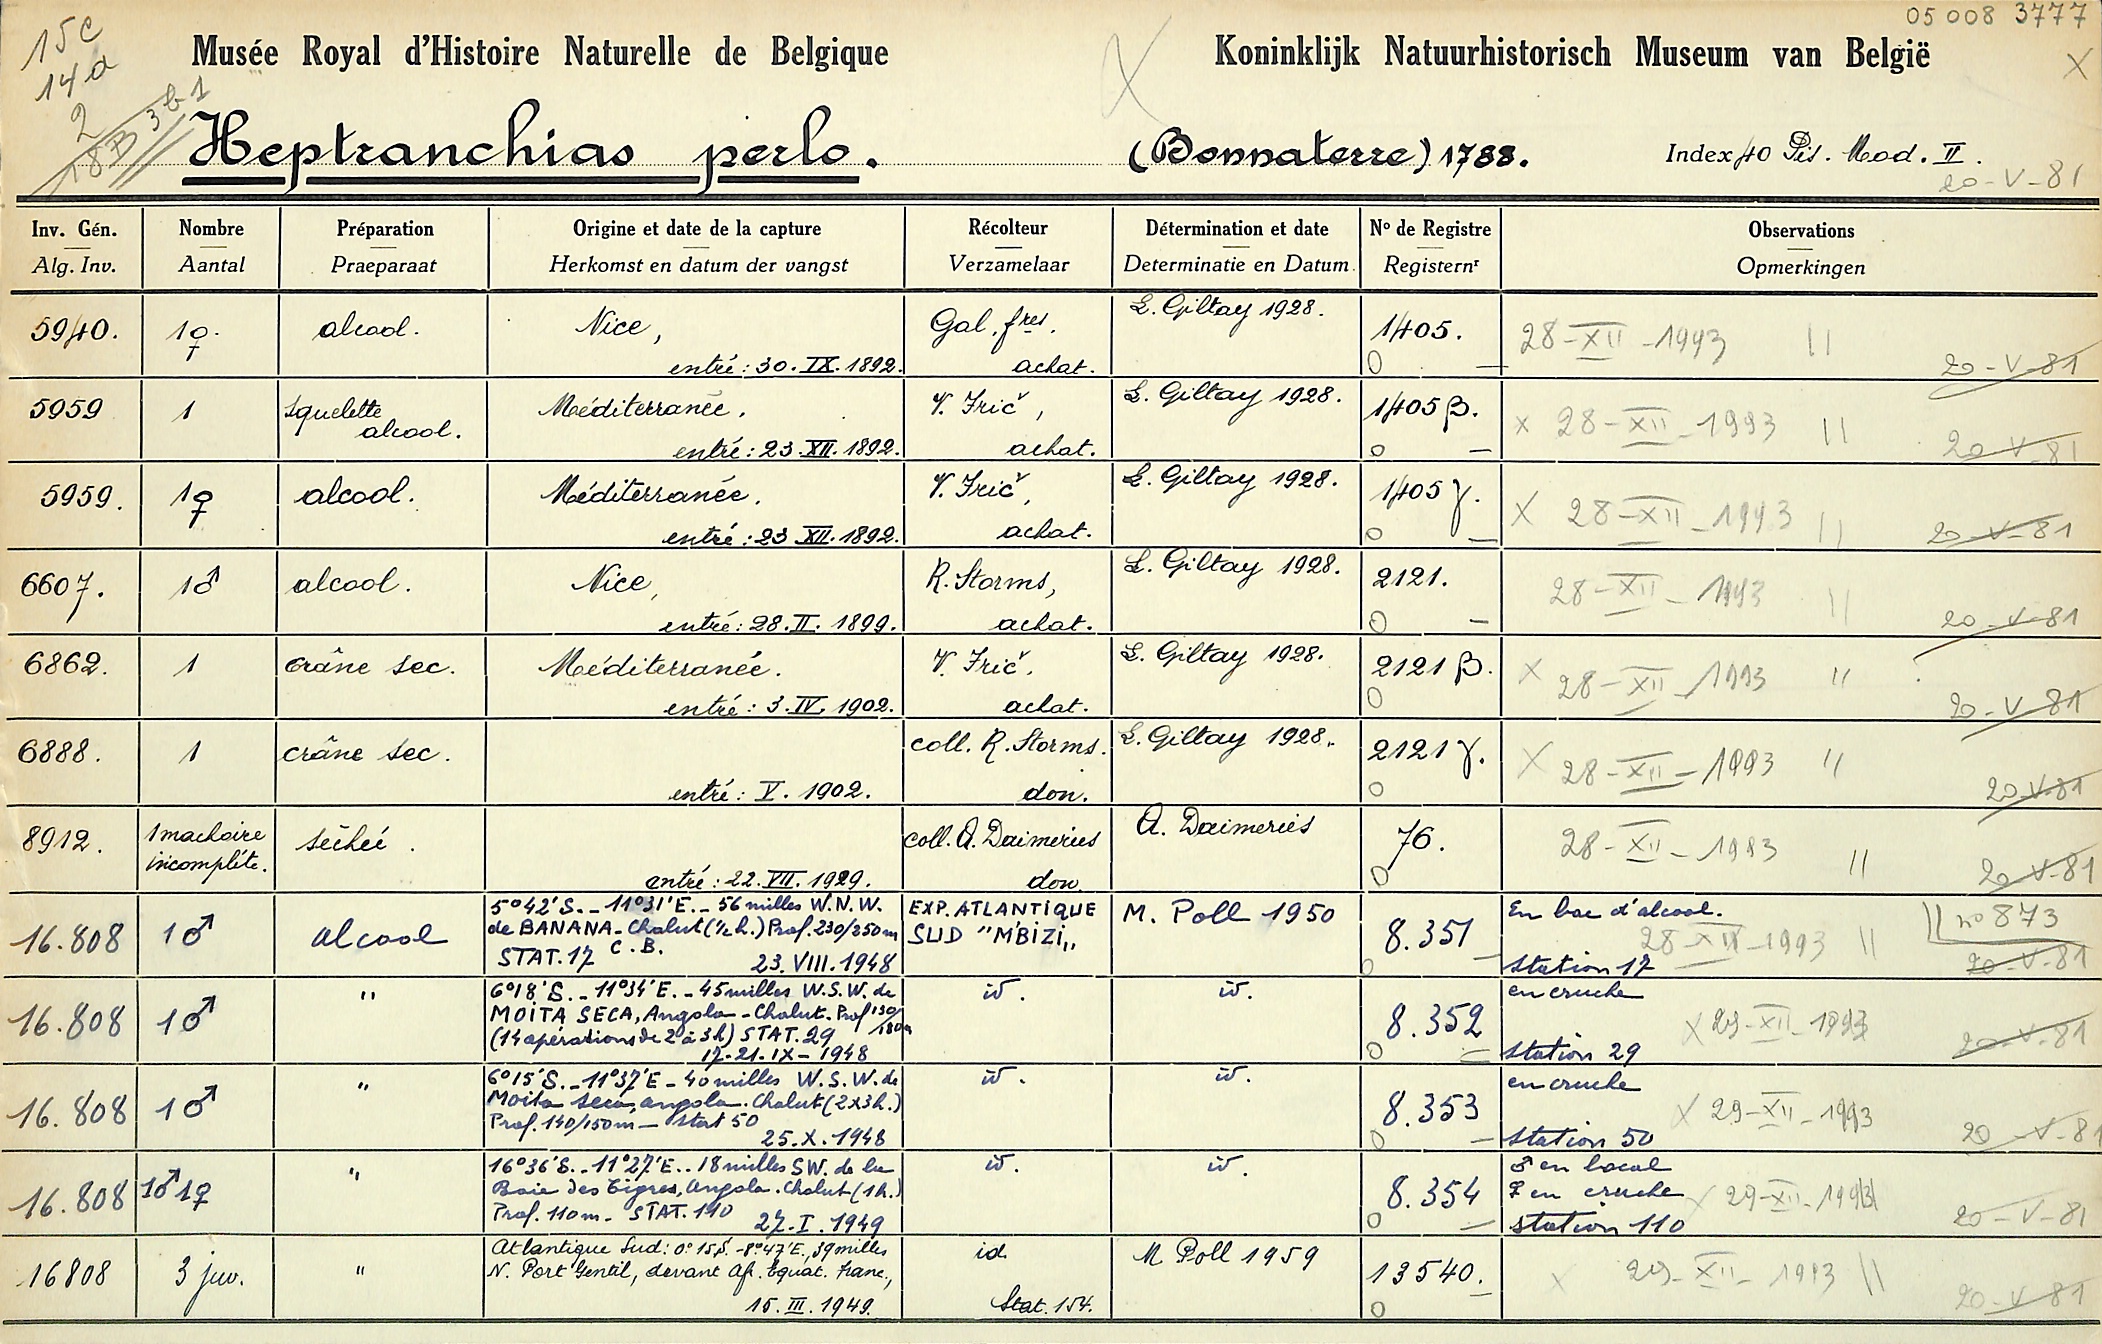 05 008 3777
15c
14a
2
18B 3b1
Musée Royal d'Histoire Naturelle de Belgique
Koninklijk Natuurhistorisch Museum van België
X
X
Heptranchias perlo.
(Bonnaterre) 1788.
Index 40 Pis. Mod. II.
20-V-81
Inv. Gén. Nombre Préparation Origine et date de la capture Récolteur Détermination et date No de Registre Observations
Alg. Inv. Aantal Praeparaat Herkomst en datum der vangst Verzamelaar Determinatie en Datum Registernr Opmerkingen
5940. 1♀. alcool. Nice, Gal. fres. L. Giltay 1928. 1405. 28-XII-1993 ||
entré: 30.IX.1892. achat. 0 — 20-V-81
5959 1 squelette Méditerranée. V. Frič, L. Giltay 1928. 1405β. x 28-XII-1993 ||
alcool. entré: 23.XII.1892. achat. 0 — 20-V-81
5959. 1♀ alcool. Méditerranée. V. Frič, L. Giltay 1928. 1405γ. X 28-XII-1993 ||
entré: 23 XII.1892. achat. 0 — 20-V-81
6607. 1♂ alcool. Nice, R. Storms, L. Giltay 1928. 2121. 28-XII-1993 ||
entré: 28.II.1899. achat. 0 — 20-V-81
6862. 1 crâne sec. Méditerranée. V. Frič. L. Giltay 1928. 2121β. X 28-XII-1993 ||
entré: 3.IV.1902. achat. 0 20-V-81
6888. 1 crâne sec. coll. R. Storms. L. Giltay 1928. 2121γ. X 28-XII-1993 ||
entré: V.1902. don. 0 20-V-81
8912. 1 machoire séchée. coll. A. Daimeries A. Daimeriès 76. 28-XII-1993 ||
incomplète. entré: 22.VII.1929. don. 0 20-V-81
5°42'S.-11°31'E.-56 milles W.N.W. EXP. ATLANTIQUE M. Poll 1950 En bac d'alcool. || no 873
16.808 1♂ alcool de BANANA-Chalut (½ h.) Prof. 230/250m SUD "M'BIZI" 8.351 28-XII-1993 ||
STAT. 17 C.B. 23.VIII.1948 0 — Station 17 20-V-81
6°18'S.-11°34'E.-45 milles W.S.W. de id. id. en cruche
16.808 1♂ " MOITA SECA, Angola-Chalut. Prof 130/180m 8.352 X 29-XII-1993
(14 opérations de 2 à 3h) STAT. 29 20-V-81
17-21-IX-1948 0 — Station 29
6°15'S.-11°37'E-40 milles W.S.W. de id. id. en cruche
16.808 1♂ " Moita seca, angola. Chalut (2x3h.) 8.353 X 29-XII-1993
Prof. 140/150m - Stat 50
25.X.1948 0 — Station 50 20-V-81
16°36'S.-11°27'E.. 18 milles SW. de la id. id. ♂ en bocal
16.808 1♂1♀ " Baie des Tigres, Angola. Chalut (1h.) 8.354 ♀ en cruche X 29-XII-1993
Prof. 110m. STAT. 110 27.I.1949 0 — station 110 20-V-81
Atlantique Sud: 0°15'S.-8°47'E., 39 milles id M Poll 1959
16808 3 juv. " N. Port Gentil, devant Af. Equat. Franc., 13540. x 29-XII-1993 ||
15.III.1949. Stat. 154. 0 20-V-81